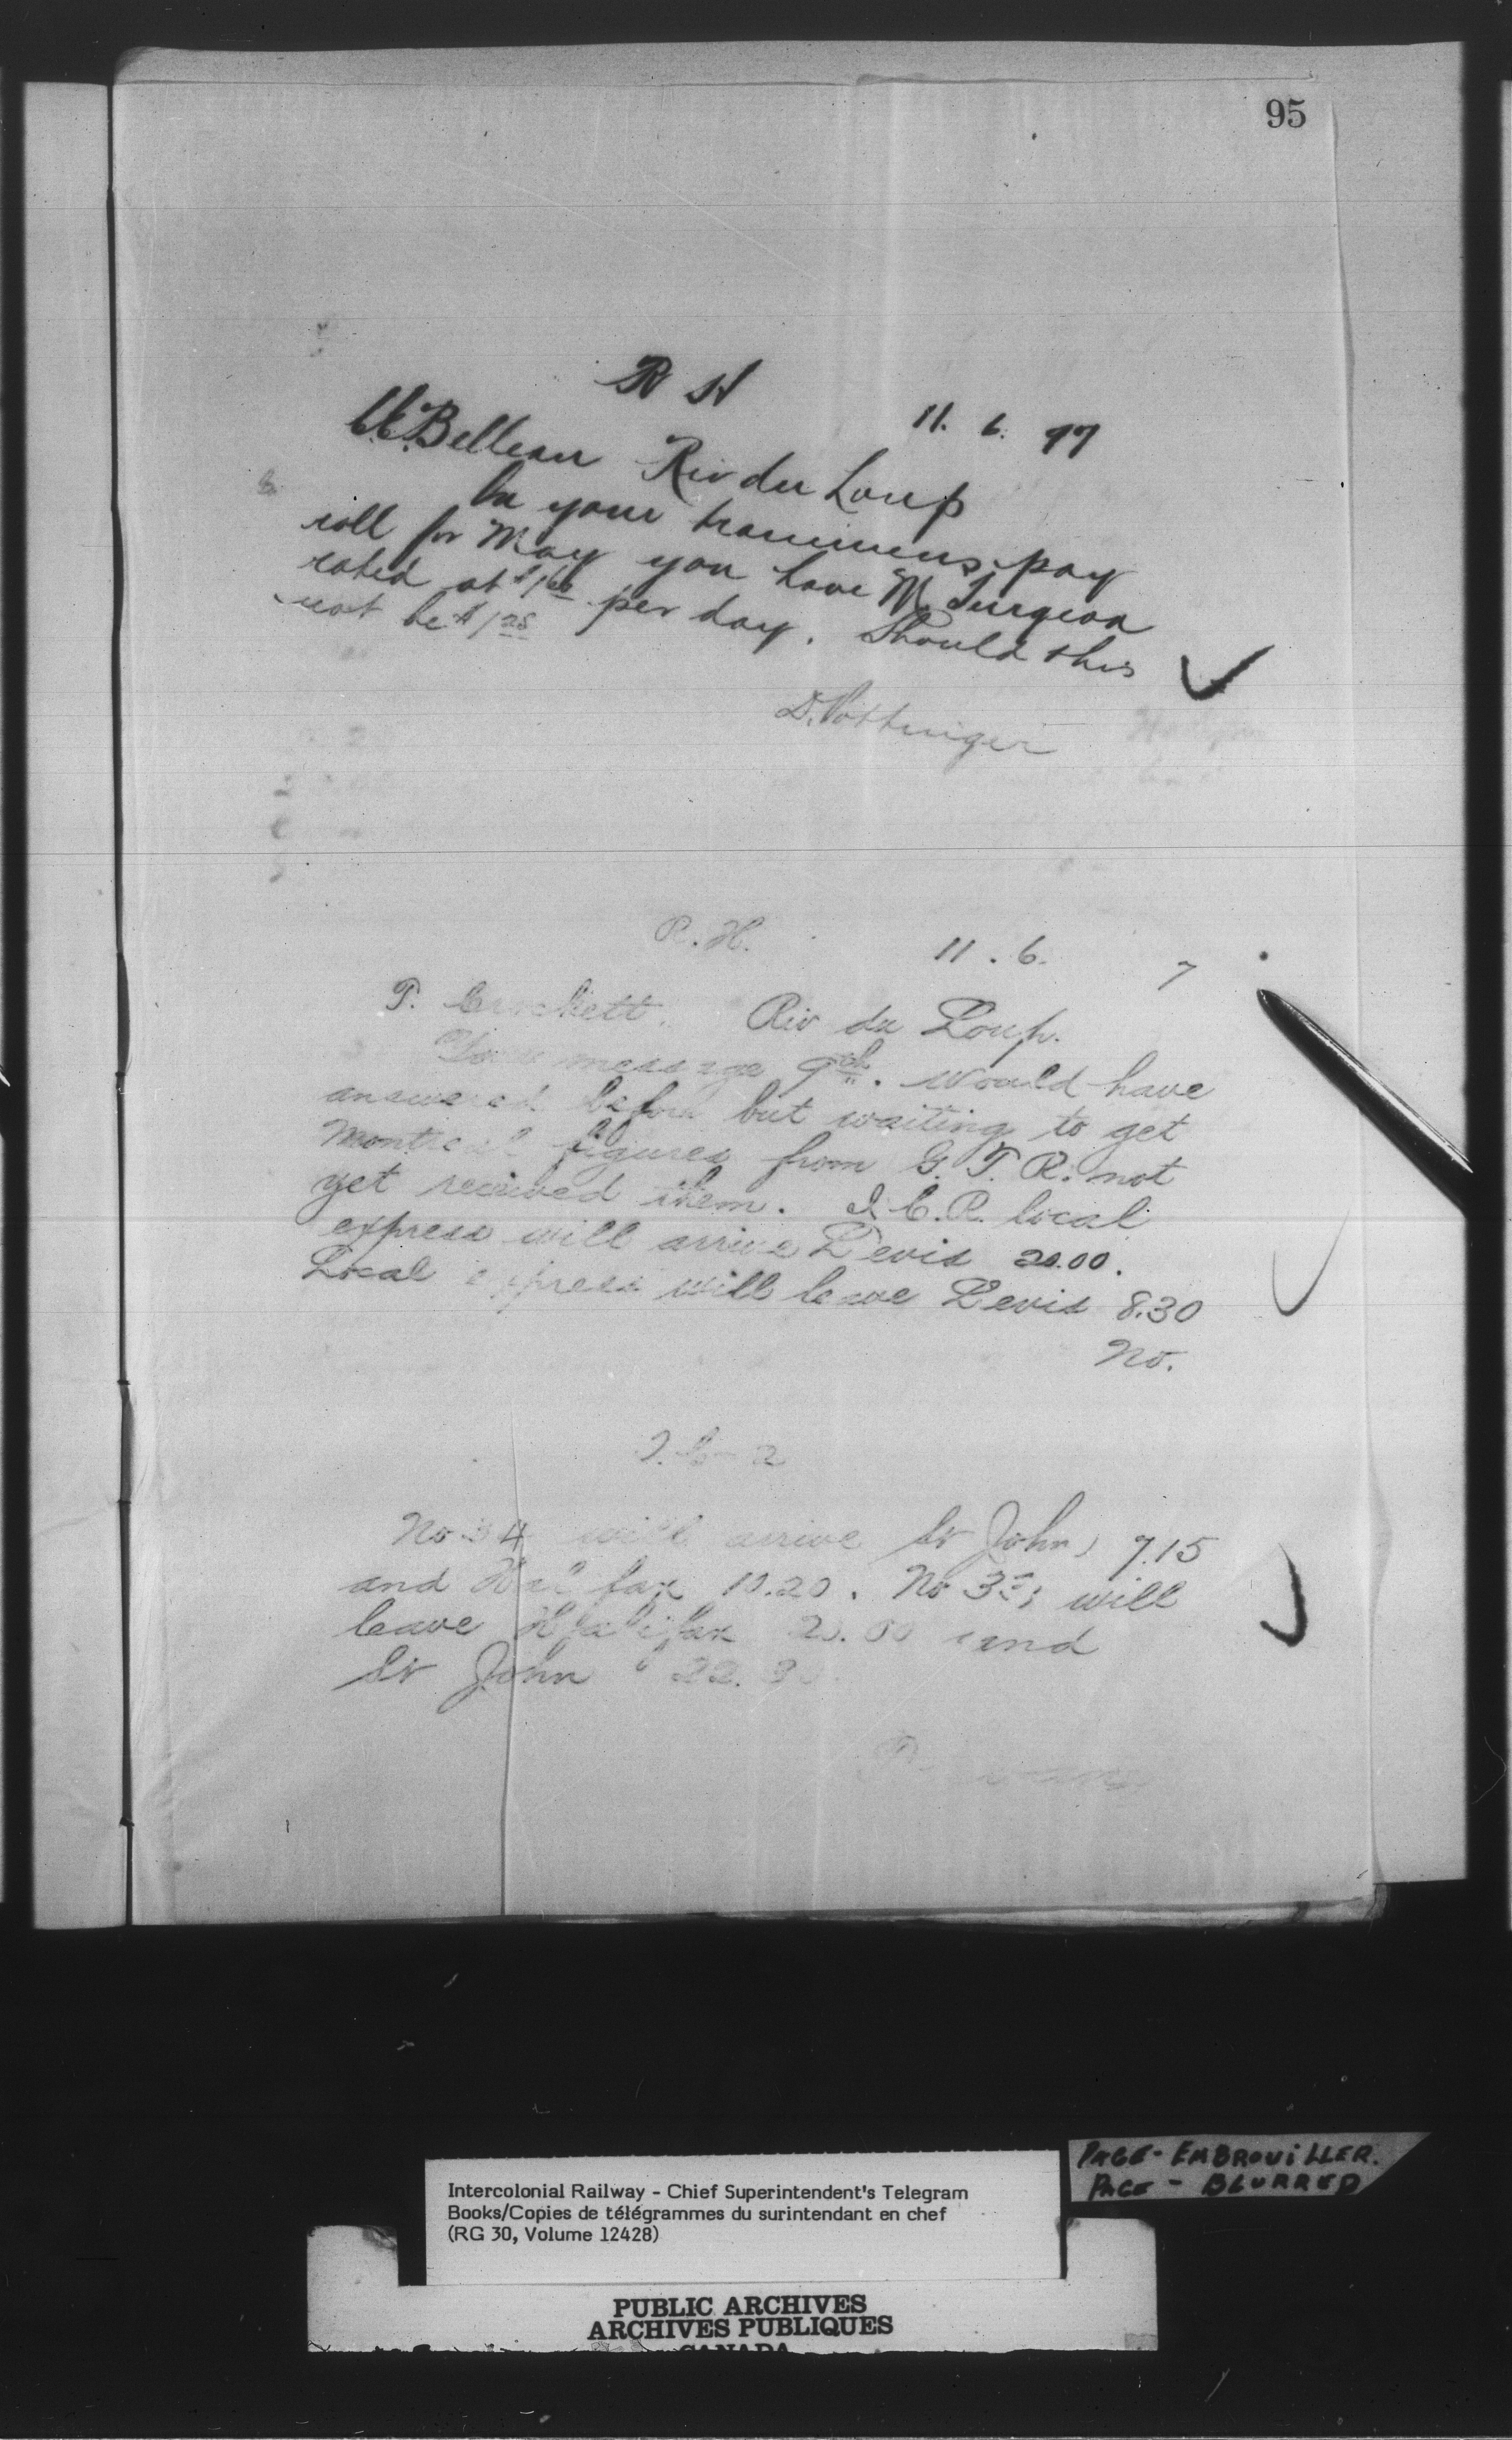 95
R H
11. 6. 97
Belleau Riv du Loup
In your trainmens pay
roll for May you have M Turgeon
rated at $1 60 per day. Should this
not be $1 25
D. Pottinger
R. H.
11. 6. 7
P. Crockett. Riv du Loup.
Your message 9th. Would have
answered before but waiting to get
Montreal figures from G. T. R. not
yet received them. I. C. R. local
express will arrive Levis 20.00.
Local express will leave Levis 8.30
No.
No 34 will arrive St John 7.15
and Halifax 10.20. No 33 will
leave Halifax 20.00 and
St John 22.30
Intercolonial Railway - Chief Superintendent's Telegram
Books/Copies de télégrammes du surintendant en chef
(RG 30, Volume 12428)
PAGE - EMBROUILLER.
PAGE - BLURRED
PUBLIC ARCHIVES
ARCHIVES PUBLIQUES
CANADA